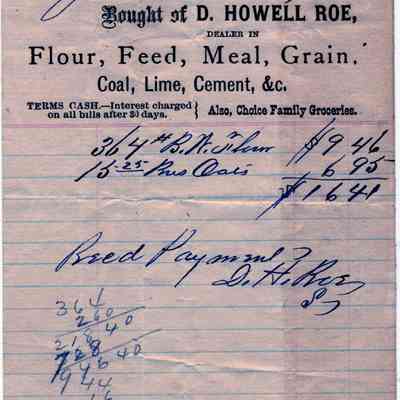 Bought of D. HOWELL ROE,
DEALER IN
Flour, Feed, Meal, Grain,
Coal, Lime, Cement, &c.
TERMS CASH.—Interest charged on all bills after 30 days. } Also, Choice Family Groceries.
364 # B.W. Flour $9 46
15 25 Bus Oats 6 95
$16 41
Recd Payment
D. H. Roe
364
260
218 40
728
946 40
944